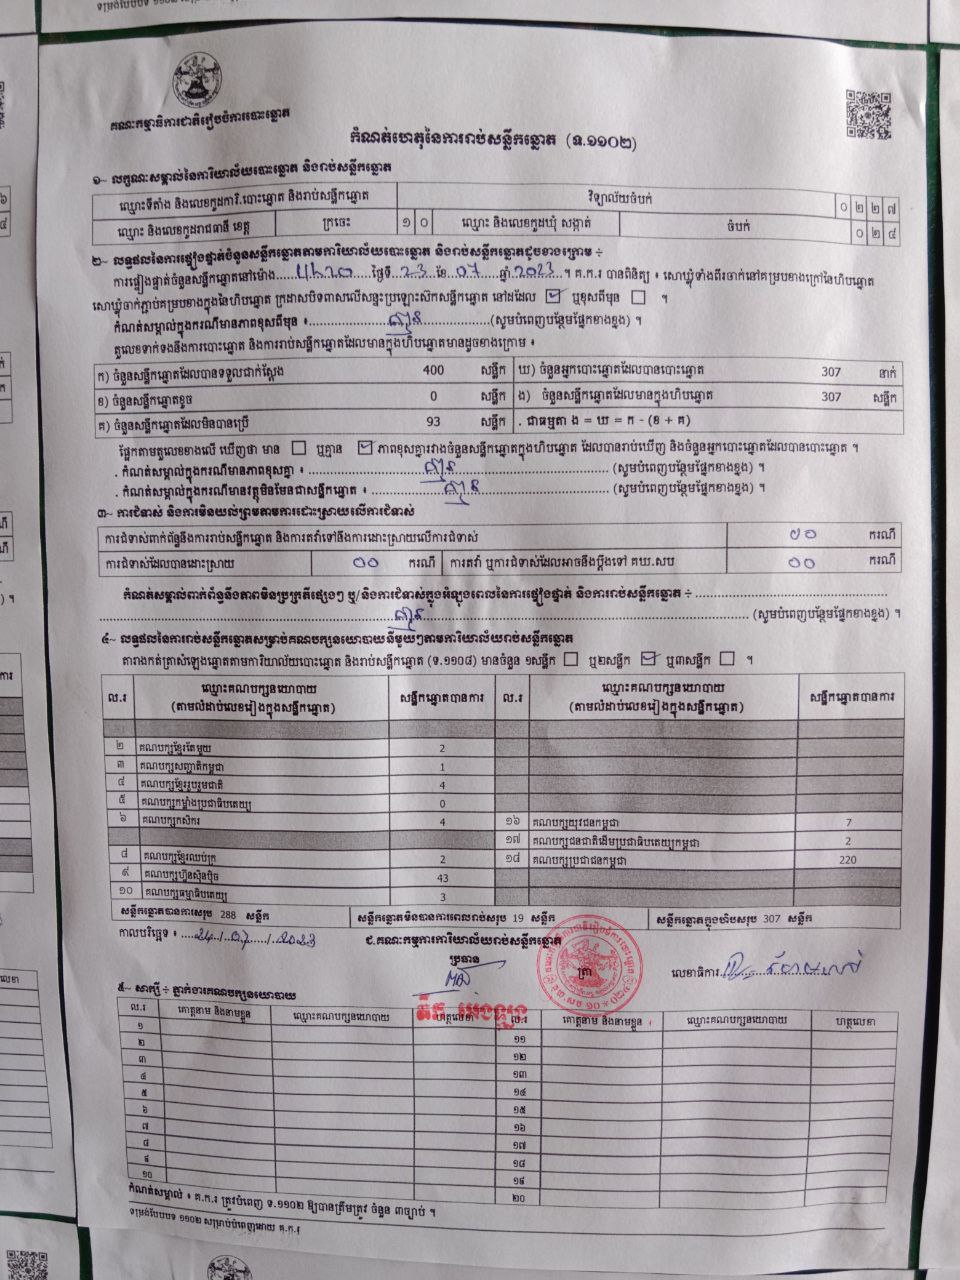 គណៈកម្មាធិការជាតិរៀបចំការបោះឆ្នោត
កំណត់ហេតុនៃការរាប់សន្លឹកឆ្នោត (ទ.១១០២)
១~ លក្ខណៈសម្គាល់នៃការិយាល័យបោះឆ្នោត និងរាប់សន្លឹកឆ្នោត
ឈ្មោះទីតាំង និងលេខកូដការិ.បោះឆ្នោត និងរាប់សន្លឹកឆ្នោត វិទ្យាល័យចំបក់ ០ ២ ២ ៧
ឈ្មោះ និងលេខកូដរាជធានី ខេត្ត ក្រចេះ ១ ០ ឈ្មោះ និងលេខកូដឃុំ សង្កាត់ ចំបក់ ០ ២ ៤
២~ លទ្ធផលនៃការផ្ទៀងផ្ទាត់ចំនួនសន្លឹកឆ្នោតតាមការិយាល័យបោះឆ្នោត និងរាប់សន្លឹកឆ្នោតដូចខាងក្រោម ÷
ការផ្ទៀងផ្ទាត់ចំនួនសន្លឹកឆ្នោតនៅម៉ោង ថ្ងៃទី 23 ខែ 07 ឆ្នាំ 2023 ។ គ.ក.រ បានពិនិត្យ ៖ សោឃ្លុំទាំងពីរចាក់នៅគម្របខាងក្រៅនៃហិបឆ្នោត
សោឃ្លុំចាក់ភ្ជាប់គម្របខាងក្នុងនៃហិបឆ្នោត ក្រដាសបិទពាសលើសន្ទះប្រឡោះស៊កសន្លឹកឆ្នោត នៅដដែល ឬខុសពីមុន ។
កំណត់សម្គាល់ក្នុងករណីមានភាពខុសពីមុន ៖ គ្មាន (សូមបំពេញបន្ថែមផ្នែកខាងខ្នង) ។
តួលេខទាក់ទងនឹងការបោះឆ្នោត និងការរាប់សន្លឹកឆ្នោតដែលមានក្នុងហិបឆ្នោតមានដូចខាងក្រោម ៖
ក) ចំនួនសន្លឹកឆ្នោតដែលបានទទួលជាក់ស្តែង 400 សន្លឹក ឃ) ចំនួនអ្នកបោះឆ្នោតដែលបានបោះឆ្នោត 307 នាក់
ខ) ចំនួនសន្លឹកឆ្នោតខូច 0 សន្លឹក ង) ចំនួនសន្លឹកឆ្នោតដែលមានក្នុងហិបឆ្នោត 307 សន្លឹក
គ) ចំនួនសន្លឹកឆ្នោតដែលមិនបានប្រើ 93 សន្លឹក . ជាធម្មតា ង = ឃ = ក - (ខ + គ)
ផ្អែកតាមតួលេខខាងលើ ឃើញថា មាន ឬគ្មាន ភាពខុសគ្នារវាងចំនួនសន្លឹកឆ្នោតក្នុងហិបឆ្នោត ដែលបានរាប់ឃើញ និងចំនួនអ្នកបោះឆ្នោតដែលបានបោះឆ្នោត ។
. កំណត់សម្គាល់ក្នុងករណីមានភាពខុសគ្នា ៖ គ្មាន (សូមបំពេញបន្ថែមផ្នែកខាងខ្នង) ។
. កំណត់សម្គាល់ក្នុងករណីមានវត្ថុមិនមែនជាសន្លឹកឆ្នោត ៖ គ្មាន (សូមបំពេញបន្ថែមផ្នែកខាងខ្នង) ។
៣~ ការជំទាស់ និងការមិនយល់ព្រមតាមការដោះស្រាយលើការជំទាស់
ការជំទាស់ពាក់ព័ន្ធនឹងការរាប់សន្លឹកឆ្នោត និងការតវ៉ាទៅនឹងការដោះស្រាយលើការជំទាស់ ០០ ករណី
ការជំទាស់ដែលបានដោះស្រាយ ០០ ករណី ការតវ៉ា ឬការជំទាស់ដែលអាចនឹងប្តឹងទៅ គឃ.សប ០០ ករណី
កំណត់សម្គាល់ពាក់ព័ន្ធនឹងភាពមិនប្រក្រតីផ្សេងៗ ឬ/និងការជំទាស់ក្នុងអំឡុងពេលនៃការផ្ទៀងផ្ទាត់ និងការរាប់សន្លឹកឆ្នោត ÷
គ្មាន (សូមបំពេញបន្ថែមផ្នែកខាងខ្នង) ។
៤~ លទ្ធផលនៃការរាប់សន្លឹកឆ្នោតសម្រាប់គណបក្សនយោបាយនីមួយៗតាមការិយាល័យរាប់សន្លឹកឆ្នោត
តារាងកត់ត្រាសំឡេងឆ្នោតតាមការិយាល័យបោះឆ្នោត និងរាប់សន្លឹកឆ្នោត (ទ.១១០៨) មានចំនួន ១សន្លឹក ឬ២សន្លឹក ឬ៣សន្លឹក ។
ល.រ ឈ្មោះគណបក្សនយោបាយ (តាមលំដាប់លេខរៀងក្នុងសន្លឹកឆ្នោត) សន្លឹកឆ្នោតបានការ ល.រ ឈ្មោះគណបក្សនយោបាយ (តាមលំដាប់លេខរៀងក្នុងសន្លឹកឆ្នោត) សន្លឹកឆ្នោតបានការ
២ គណបក្សខ្មែរតែមួយ 2
៣ គណបក្សសញ្ជាតិកម្ពុជា 1
៤ គណបក្សខ្មែររួបរួមជាតិ 4
៥ គណបក្សកម្លាំងប្រជាធិបតេយ្យ 0
៦ គណបក្សកសិករ 4 ១៦ គណបក្សយុវជនកម្ពុជា 7
១៧ គណបក្សជនជាតិដើមប្រជាធិបតេយ្យកម្ពុជា 2
៨ គណបក្សខ្មែរឈប់ក្រ 2 ១៨ គណបក្សប្រជាជនកម្ពុជា 220
៩ គណបក្សហ្វ៊ុនស៊ិនប៉ិច 43
១០ គណបក្សធម្មាធិបតេយ្យ 3
សន្លឹកឆ្នោតបានការសរុប 288 សន្លឹក សន្លឹកឆ្នោតមិនបានការពេលរាប់សរុប 19 សន្លឹក សន្លឹកឆ្នោតក្នុងហិបសរុប 307 សន្លឹក
កាលបរិច្ឆេទ ៖ 24/07/2023 ជ.គណៈកម្មការការិយាល័យរាប់សន្លឹកឆ្នោត
ប្រធាន ត្រា លេខាធិការ
៥~ សាក្សី ÷ ភ្នាក់ងារគណបក្សនយោបាយ
ល.រ គោត្តនាម និងនាមខ្លួន ឈ្មោះគណបក្សនយោបាយ ហត្ថលេខា ល.រ គោត្តនាម និងនាមខ្លួន ឈ្មោះគណបក្សនយោបាយ ហត្ថលេខា
១ ១១
២ ១២
៣ ១៣
៤ ១៤
៥ ១៥
៦ ១៦
៧ ១៧
៨ ១៨
៩ ១៩
១០ ២០
កំណត់សម្គាល់ ៖ គ.ក.រ ត្រូវបំពេញ ទ.១១០២ ឱ្យបានត្រឹមត្រូវ ចំនួន ៣ច្បាប់ ។
ទម្រង់បែបបទ ១១០២ សម្រាប់បំពេញដោយ គ.ក.រ